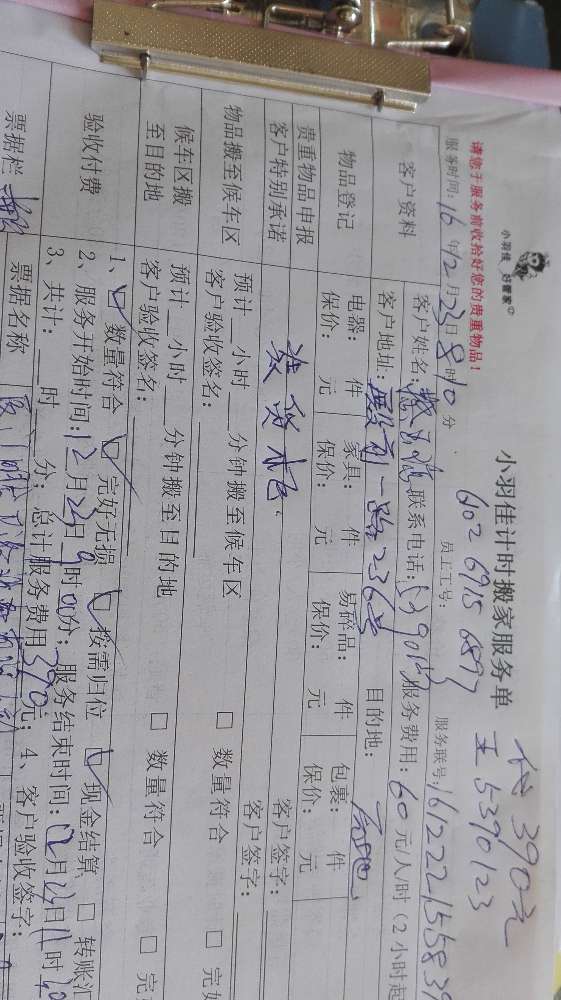 小羽佳 好管家
小羽佳计时搬家服务单
代 390元
王 5390123
602 6915 6897
请您于服务前收拾好您的贵重物品！
服务时间：16年12月23日8时10分
员工工号：
服务联号：161222155839
客户资料
客户姓名：
联系电话：5390123
服务费用：60元/人/时（2小时起
客户地址：
一路236号
目的地：
物品登记
电器： 件 家具： 件 易碎品： 件 包裹： 件
保价： 元 保价： 元 保价： 元 保价： 元
贵重物品申报
客户特别承诺
装货柜
客户签字：
物品搬至候车区
预计__小时__分钟搬至候车区
客户签字：
客户验收签名：
□ 数量符合 □ 完好
候车区搬至目的地
预计__小时__分钟搬至目的地
客户验收签名：
□ 数量符合 □ 完
验收付费
1、☑ 数量符合 ☑ 完好无损 ☑ 按需归位 ☑ 现金结算 □ 转账汇
2、服务开始时间：12月23日9时00分；服务结束时间：12月23日11时40
3、共计：__时__分；总计服务费用390元；4、客户验收签字：
票据栏
票据名称